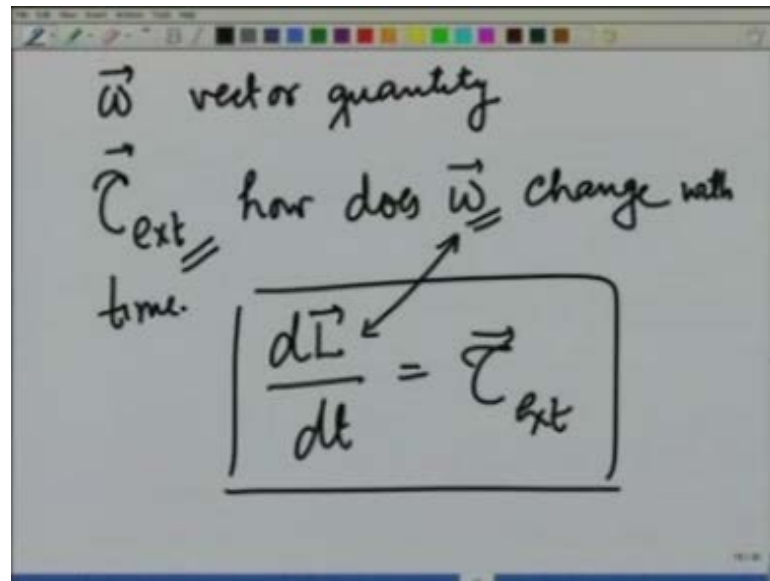 ω⃗ vector quantity
τ⃗ext how does ω⃗ change with
time.
dL⃗/dt = τ⃗ext